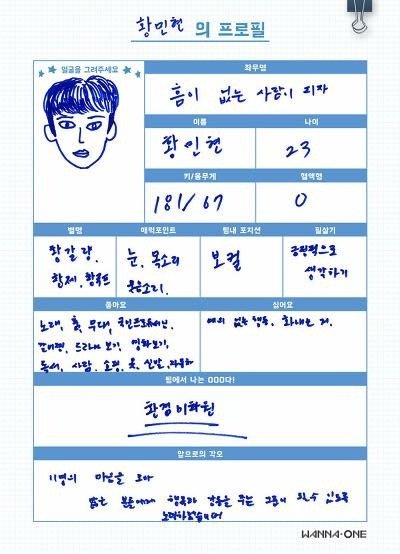 황민현 의 프로필
얼굴을 그려주세요
좌우명
흠이 없는 사람이 되자
이름
나이
황민현
23
키/몸무게
혈액형
181/67
O
별명
매력포인트
팀내 포지션
필살기
황갈량,
눈, 목소리
보컬
긍정적으로
황제, 황로프
웃음소리.
생각하기
좋아요
싫어요
노래, 춤, 무대, 국민프로듀서님,
예의 없는 행동, 화내는 거.
드라마 보기, 영화보기,
독서, 사람, 쇼핑, 옷, 신발,
팀에서 나는 OOO다!
환경미화원
앞으로의 각오
11명의 마음을 모아
많은 분들에게 행복과 감동을 주는 그룹이 될 수 있도록
노력하겠습니다
WANNA·ONE